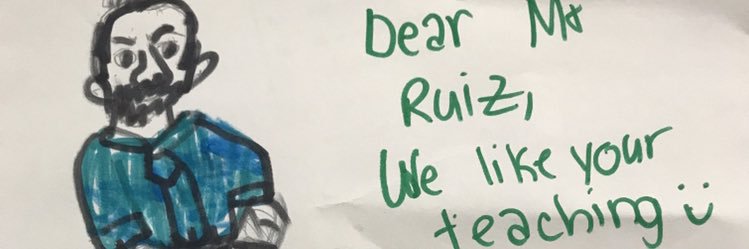 Dear Mr
Ruiz,
We like your
teaching